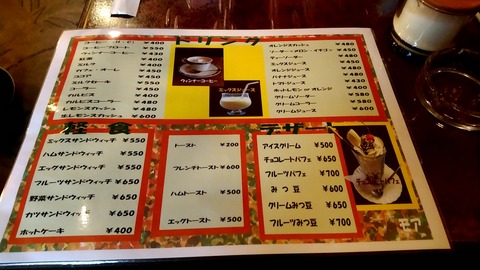 ドリンク
コーヒー (H・C) ¥400
コーヒーフロート ¥550
ウィンナーコーヒー ¥430
紅茶 ¥400
ミルク ¥400
カフェ・オーレ ¥450
ココア ¥450
ミルクセーキ ¥550
コーラー ¥450
カルピス ¥400
カルピスコーラー ¥480
レモンスカッシュ ¥480
生レモンスカッシュ ¥600
ウィンナーコーヒー
ミックスジュース
オレンジスカッシュ ¥480
ソーダー・メロン・イチゴ ¥450
ティーソーダー ¥450
ミックスジュース ¥450
オレンジジュース ¥450
バナナジュース ¥450
トマトジュース ¥450
ホットレモン or オレンジ ¥450
クリームソーダー ¥580
クリームコーラー ¥580
グレープジュース ¥500
軽食
ミックスサンドウィッチ ¥550
ハムサンドウィッチ ¥550
エッグサンドウィッチ ¥550
フルーツサンドウィッチ ¥650
野菜サンドウィッチ ¥650
カツサンドウィッチ ¥650
ホットケーキ ¥400
トースト ¥200
フレンチトースト ¥600
ハムトースト ¥500
エッグトースト ¥500
デザート
アイスクリーム ¥500
チョコレートパフェ ¥650
フルーツパフェ ¥700
みつ豆 ¥600
クリームみつ豆 ¥650
フルーツみつ豆 ¥700
チョコレートパフェ